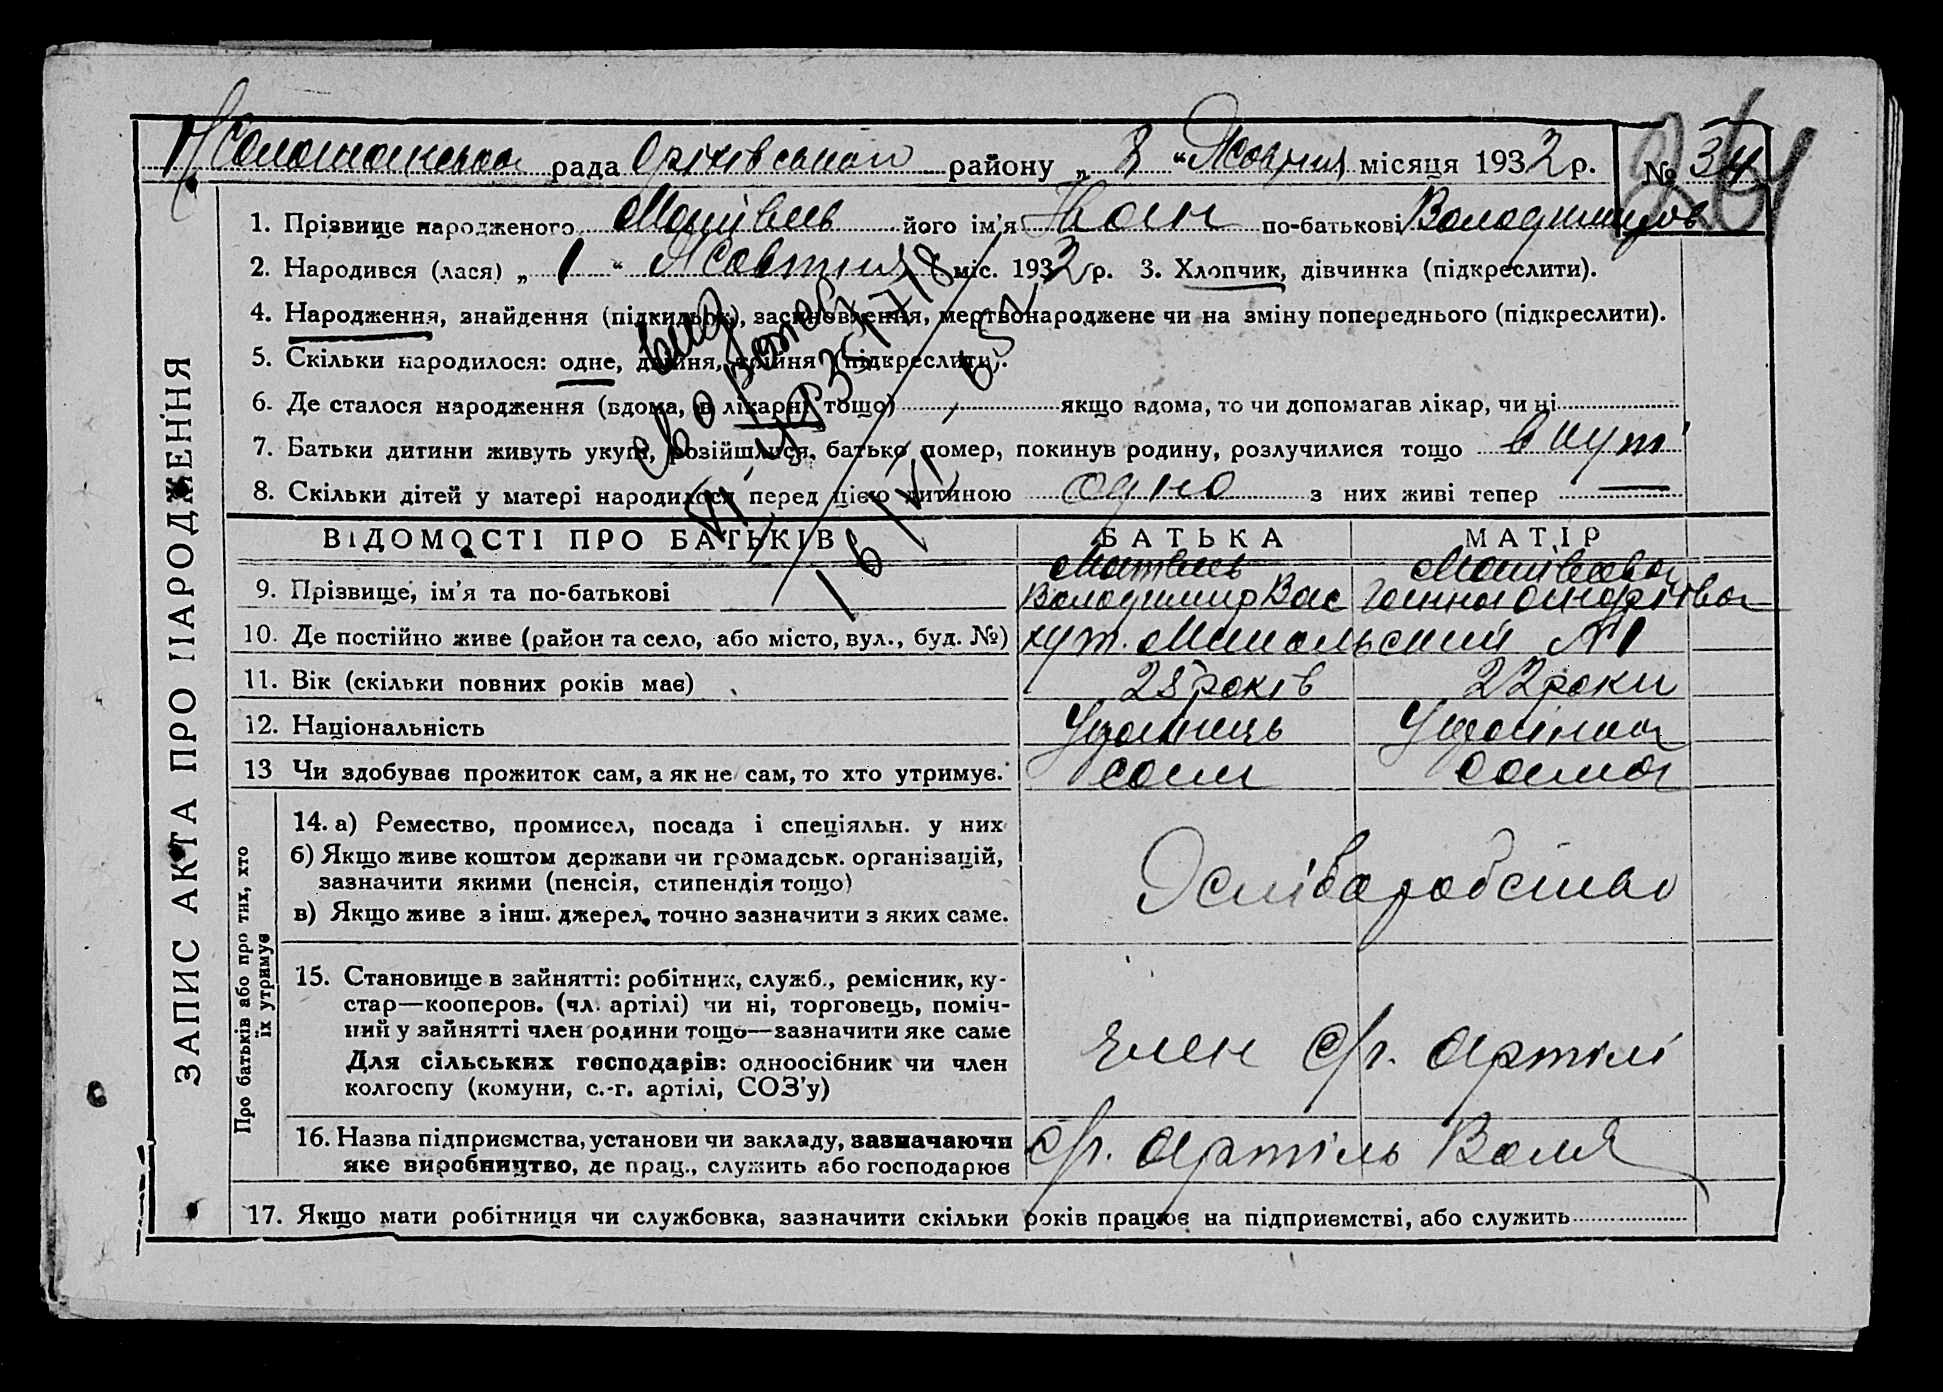 рада Оріхівського району „ 8 “ Жовтня місяця 1932 р. № 34
261
ЗАПИС АКТА ПРО НАРОДЖЕННЯ
1. Прізвище народженого Матвієць його ім'я Іван по-батькові Володимиров
2. Народився (лася) „ 1 “ Жовтня міс. 1932 р. 3. Хлопчик, дівчинка (підкреслити).
4. Народження, знайдення (підкидьок), засиновлення, мертвонароджене чи на зміну попереднього (підкреслити).
5. Скільки народилося: одне, двійня, трійня (підкреслити).
6. Де сталося народження (вдома, в лікарні тощо) якщо вдома, то чи допомагав лікар, чи ні
7. Батьки дитини живуть укупі, розійшлися, батько помер, покинув родину, розлучилися тощо вкупі
8. Скільки дітей у матері народилося перед цією дитиною одно з них живі тепер —
ВІДОМОСТІ ПРО БАТЬКІВ БАТЬКА МАТІР
9. Прізвище, ім'я та по-батькові Матвієць Володимир Вас Ганна
10. Де постійно живе (район та село, або місто, вул., буд. №) хут. №1
11. Вік (скільки повних років має) 28 років 22 роки
12. Національність Українець Українка
13 Чи здобуває прожиток сам, а як не сам, то хто утримує. сам сама
Про батьків або про тих, хто їх утримує
14. а) Ремество, промисел, посада і спеціяльн. у них
б) Якщо живе коштом держави чи громадськ. організацій,
зазначити якими (пенсія, стипендія тощо)
в) Якщо живе з інш. джерел, точно зазначити з яких саме.
15. Становище в зайнятті: робітник, служб., ремісник, ку-
стар—кооперов. (чл. артілі) чи ні, торговець, поміч-
ний у зайнятті член родини тощо—зазначити яке саме
Для сільських господарів: одноосібник чи член
колгоспу (комуни, с.-г. артілі, СОЗ'у)
Член с/г. артілі
16. Назва підприємства, установи чи закладу, зазначаючи
яке виробництво, де прац., служить або господарює
с/г. артіль Воля
17. Якщо мати робітниця чи службовка, зазначити скільки років працює на підприємстві, або служить